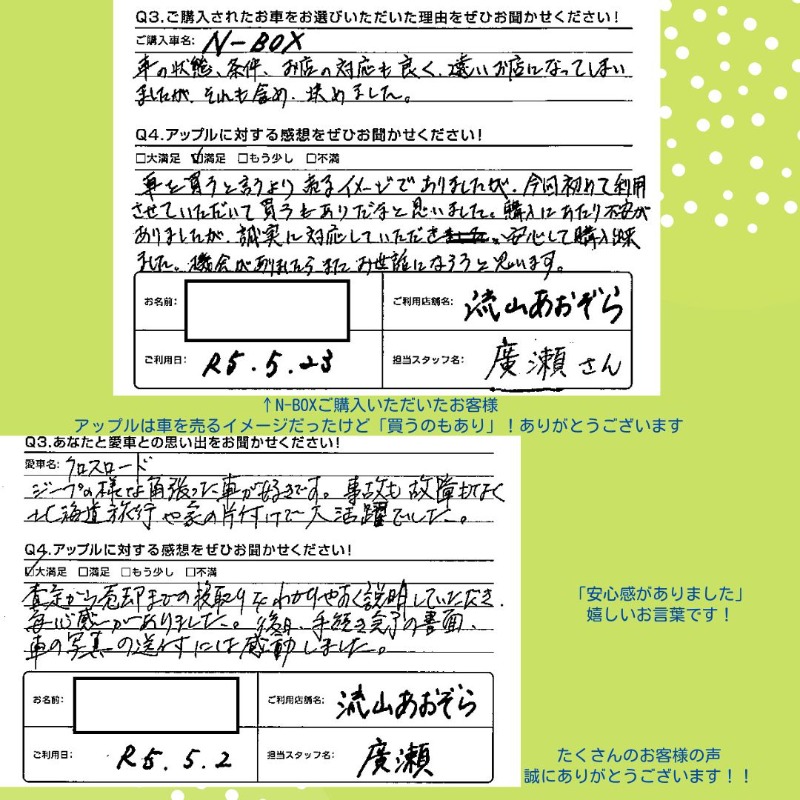 Q3.ご購入されたお車をお選びいただいた理由をぜひお聞かせください!
ご購入車名: N-BOX
車の状態、条件、お店の対応も良く、遠いお店になってしまい
ましたが、それも含め、決めました。
Q4.アップルに対する感想をぜひお聞かせください!
□大満足 ☑満足 □もう少し □不満
車を買うと言うより売るイメージでありましたが、今回初めて利用
させていただいて買うもありだなと思いました。購入にあたり不安が
ありましたが、誠実に対応していただき 安心して購入出来
ました。機会がありましたらまたお世話になろうと思います。
お名前:
ご利用店舗名: 流山あおぞら
ご利用日: R5.5.23
担当スタッフ名: 廣瀬さん
↑N-BOXご購入いただいたお客様
アップルは車を売るイメージだったけど「買うのもあり」!ありがとうございます
Q3.あなたと愛車との思い出をお聞かせください!
愛車名: クロスロード
ジープの様な角張った車が好きです。事故も故障もなく
北海道旅行や家の片付けで大活躍でした。
Q4.アップルに対する感想をぜひお聞かせください!
☑大満足 □満足 □もう少し □不満
査定から売却までの段取りをわかりやすく説明していただき、
安心感がありました。後日、手続き完了の書面、
車の写真の送付には感動しました。
お名前:
ご利用店舗名: 流山あおぞら
ご利用日: R5.5.2
担当スタッフ名: 廣瀬
「安心感がありました」
嬉しいお言葉です!
たくさんのお客様の声
誠にありがとうございます!!